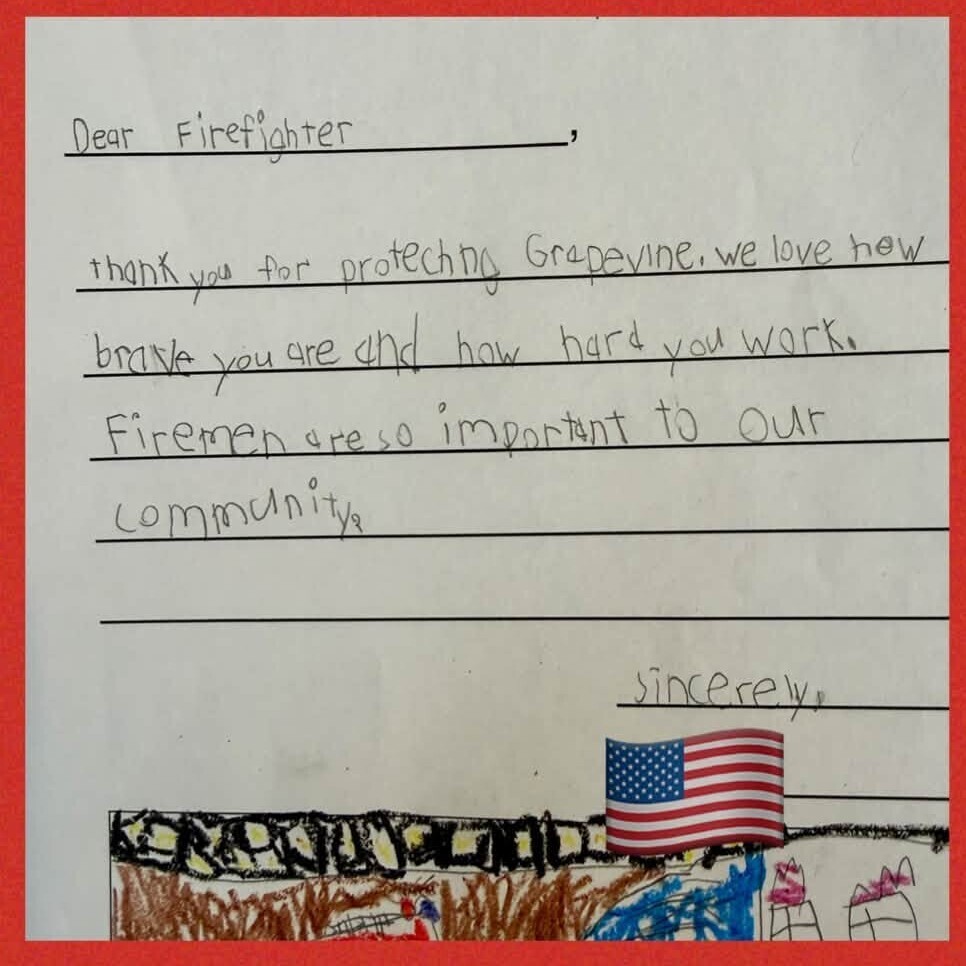 Dear Firefighter,
thank you for protecting Grapevine. we love how
brave you are and how hard you work.
Firemen are so important to our
community.
sincerely,